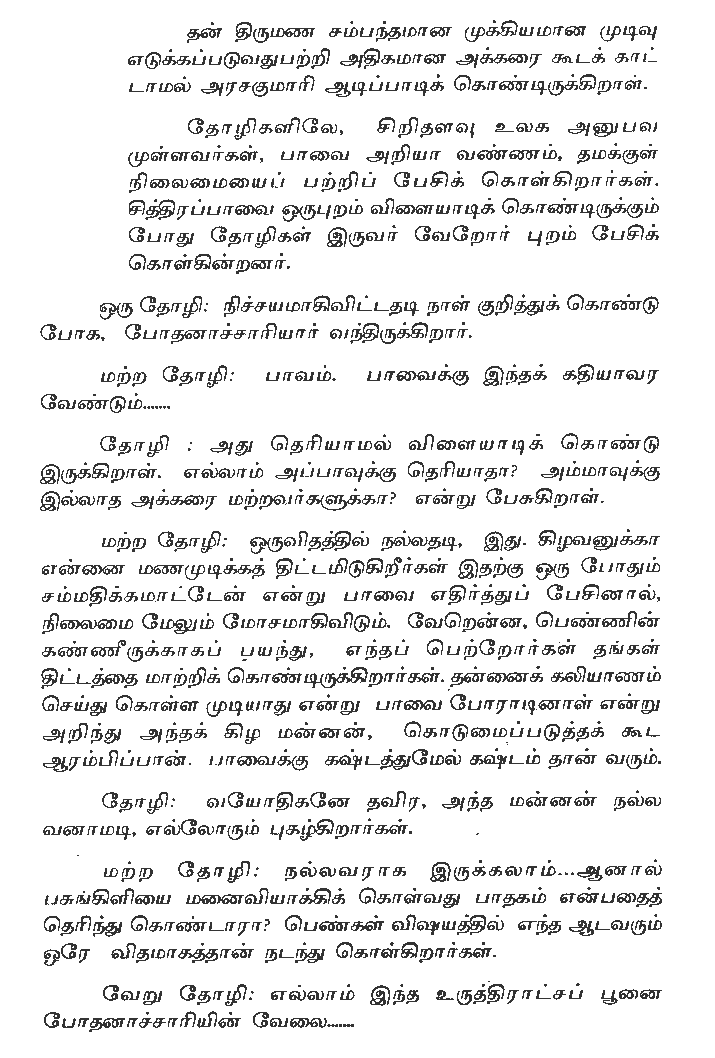 தன் திருமண சம்பந்தமான முக்கியமான முடிவு
எடுக்கப்படுவதுபற்றி அதிகமான அக்கரை கூடக் காட்
டாமல் அரசகுமாரி ஆடிப்பாடிக் கொண்டிருக்கிறாள்.
தோழிகளிலே, சிறிதளவு உலக அனுபவ
முள்ளவர்கள், பாவை அறியா வண்ணம், தமக்குள்
நிலைமையைப் பற்றிப் பேசிக் கொள்கிறார்கள்.
சித்திரப்பாவை ஒருபுறம் விளையாடிக் கொண்டிருக்கும்
போது தோழிகள் இருவர் வேறோர் புறம் பேசிக்
கொள்கின்றனர்.
ஒரு தோழி: நிச்சயமாகிவிட்டதடி நாள் குறித்துக் கொண்டு
போக, போதனாச்சாரியார் வந்திருக்கிறார்.
மற்ற தோழி: பாவம். பாவைக்கு இந்தக் கதியாவர
வேண்டும்.......
தோழி : அது தெரியாமல் விளையாடிக் கொண்டு
இருக்கிறாள். எல்லாம் அப்பாவுக்கு தெரியாதா? அம்மாவுக்கு
இல்லாத அக்கரை மற்றவர்களுக்கா? என்று பேசுகிறாள்.
மற்ற தோழி: ஒருவிதத்தில் நல்லதடி, இது. கிழவனுக்கா
என்னை மணமுடிக்கத் திட்டமிடுகிறீர்கள் இதற்கு ஒரு போதும்
சம்மதிக்கமாட்டேன் என்று பாவை எதிர்த்துப் பேசினால்,
நிலைமை மேலும் மோசமாகிவிடும். வேறென்ன, பெண்ணின்
கண்ணீருக்காகப் பயந்து, எந்தப் பெற்றோர்கள் தங்கள்
திட்டத்தை மாற்றிக் கொண்டிருக்கிறார்கள். தன்னைக் கலியாணம்
செய்து கொள்ள முடியாது என்று பாவை போராடினாள் என்று
அறிந்து அந்தக் கிழ மன்னன், கொடுமைப்படுத்தக் கூட
ஆரம்பிப்பான். பாவைக்கு கஷ்டத்துமேல் கஷ்டம் தான் வரும்.
தோழி: வயோதிகனே தவிர, அந்த மன்னன் நல்ல
வனாமடி, எல்லோரும் புகழ்கிறார்கள்.
மற்ற தோழி: நல்லவராக இருக்கலாம்...ஆனால்
பசுங்கிளியை மனைவியாக்கிக் கொள்வது பாதகம் என்பதைத்
தெரிந்து கொண்டாரா? பெண்கள் விஷயத்தில் எந்த ஆடவரும்
ஒரே விதமாகத்தான் நடந்து கொள்கிறார்கள்.
வேறு தோழி: எல்லாம் இந்த உருத்திராட்சப் பூனை
போதனாச்சாரியின் வேலை.......